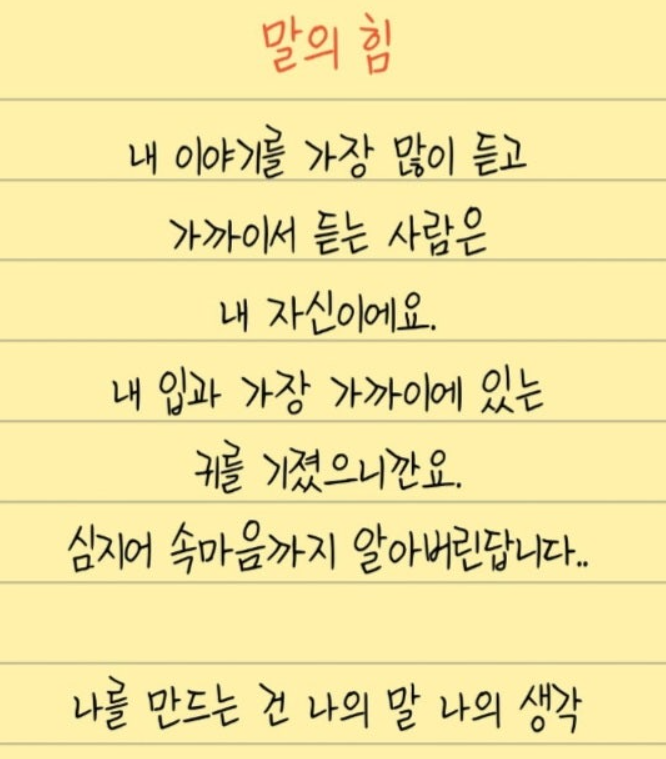 말의 힘
내 이야기를 가장 많이 듣고
가까이서 듣는 사람은
내 자신이에요.
내 입과 가장 가까이에 있는
귀를 기졌으니깐요.
심지어 속마음까지 알아버린답니다..
나를 만드는 건 나의 말 나의 생각